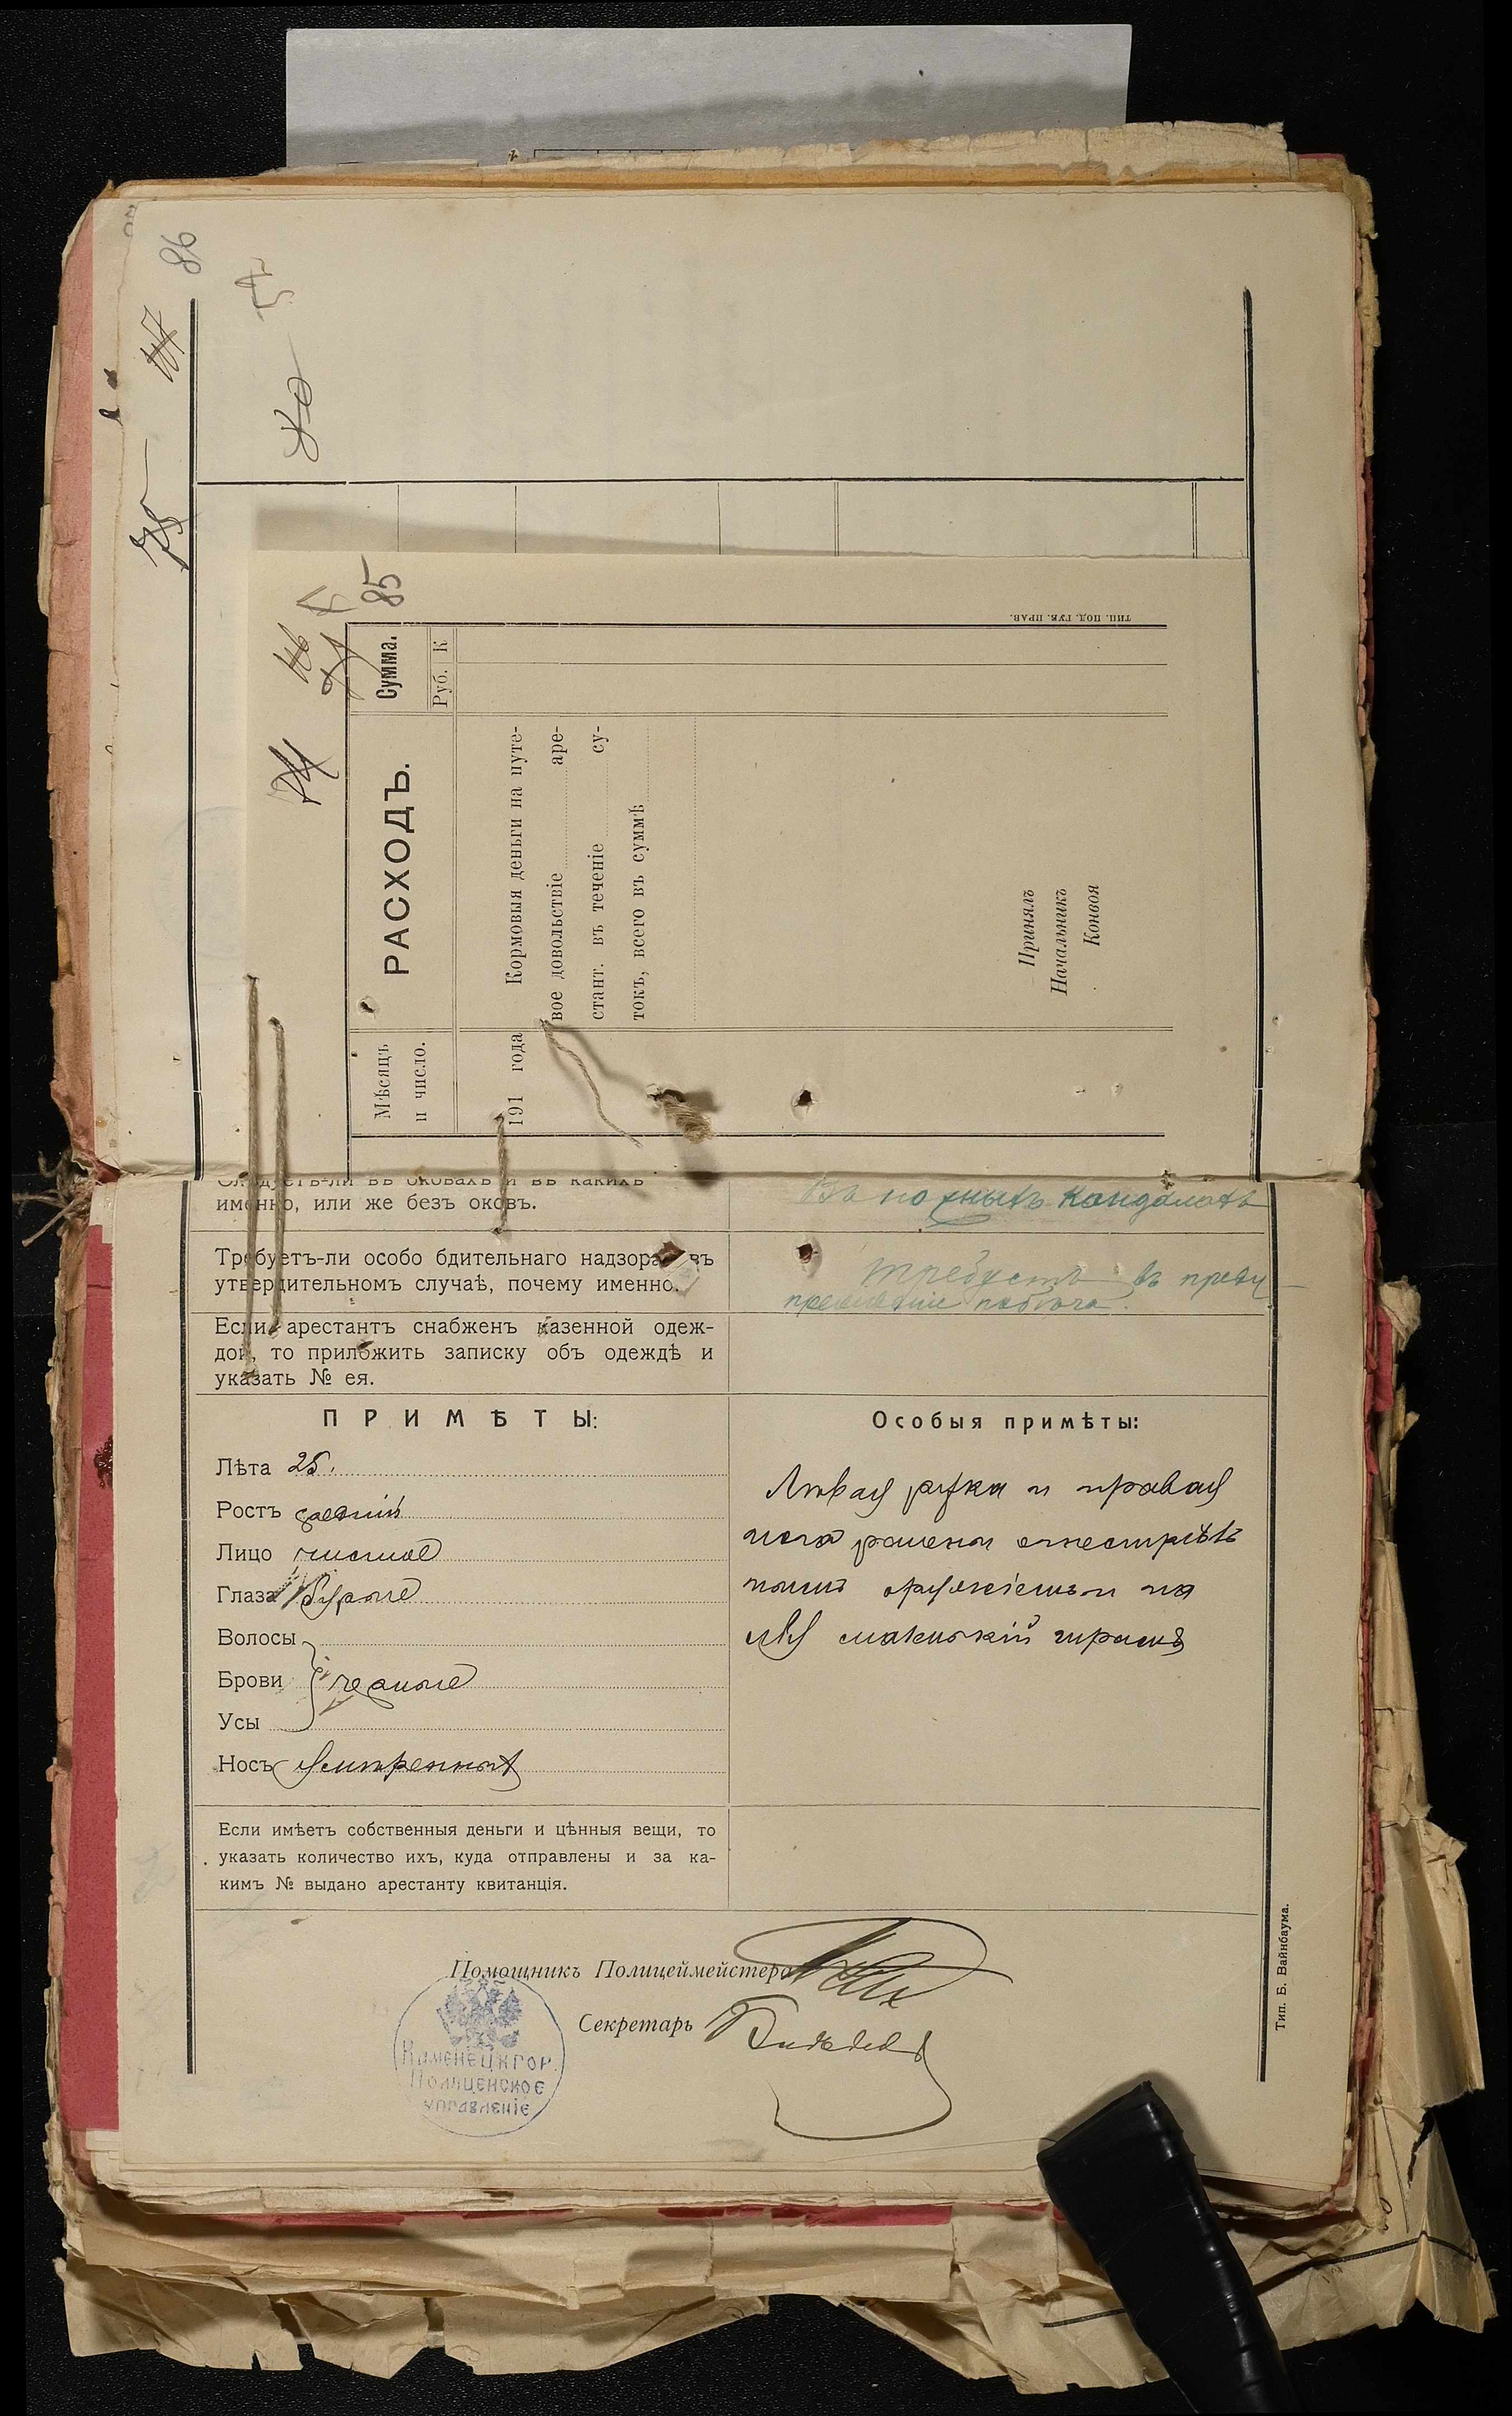 86
75
85
Сумма.
Руб. К
РАСХОДЪ.
Мѣсяцъ
и число.
191 года
Кормовыя деньги на путе-
вое довольствіе аре-
стант. въ теченіе су-
токъ, всего въ суммѣ
Принялъ
Начальникъ
Конвоя
ТИП. ПОД. ГУБ. ПРАВ.
Слѣдуетъ-ли въ оковахъ и въ какихъ
именно, или же безъ оковъ.
Въ ножныхъ кандалахъ
Требуетъ-ли особо бдительнаго надзора въ
утвердительномъ случаѣ, почему именно.
Требуетъ въ преду
прежденіе побѣга.
Если арестантъ снабженъ казенной одеж-
дой, то приложить записку объ одеждѣ и
указать № ея.
ПРИМѢТЫ:
Лѣта 25.
Ростъ средній
Лицо чистое
Глаза Бурые
Волосы
Брови черные
Усы
Носъ умѣренный
Особыя примѣты:
Лѣвая рука и правая
нога ранены огнестрѣль
нымъ оружіемъ и на
лбу маленькій шрамъ
Если имѣетъ собственныя деньги и цѣнныя вещи, то
указать количество ихъ, куда отправлены и за ка-
кимъ № выдано арестанту квитанція.
Помощникъ Полицеймейстера
Секретарь
Каменецкгор.
Полиценское
управленіе
Тип. Б. Вайнбаума.